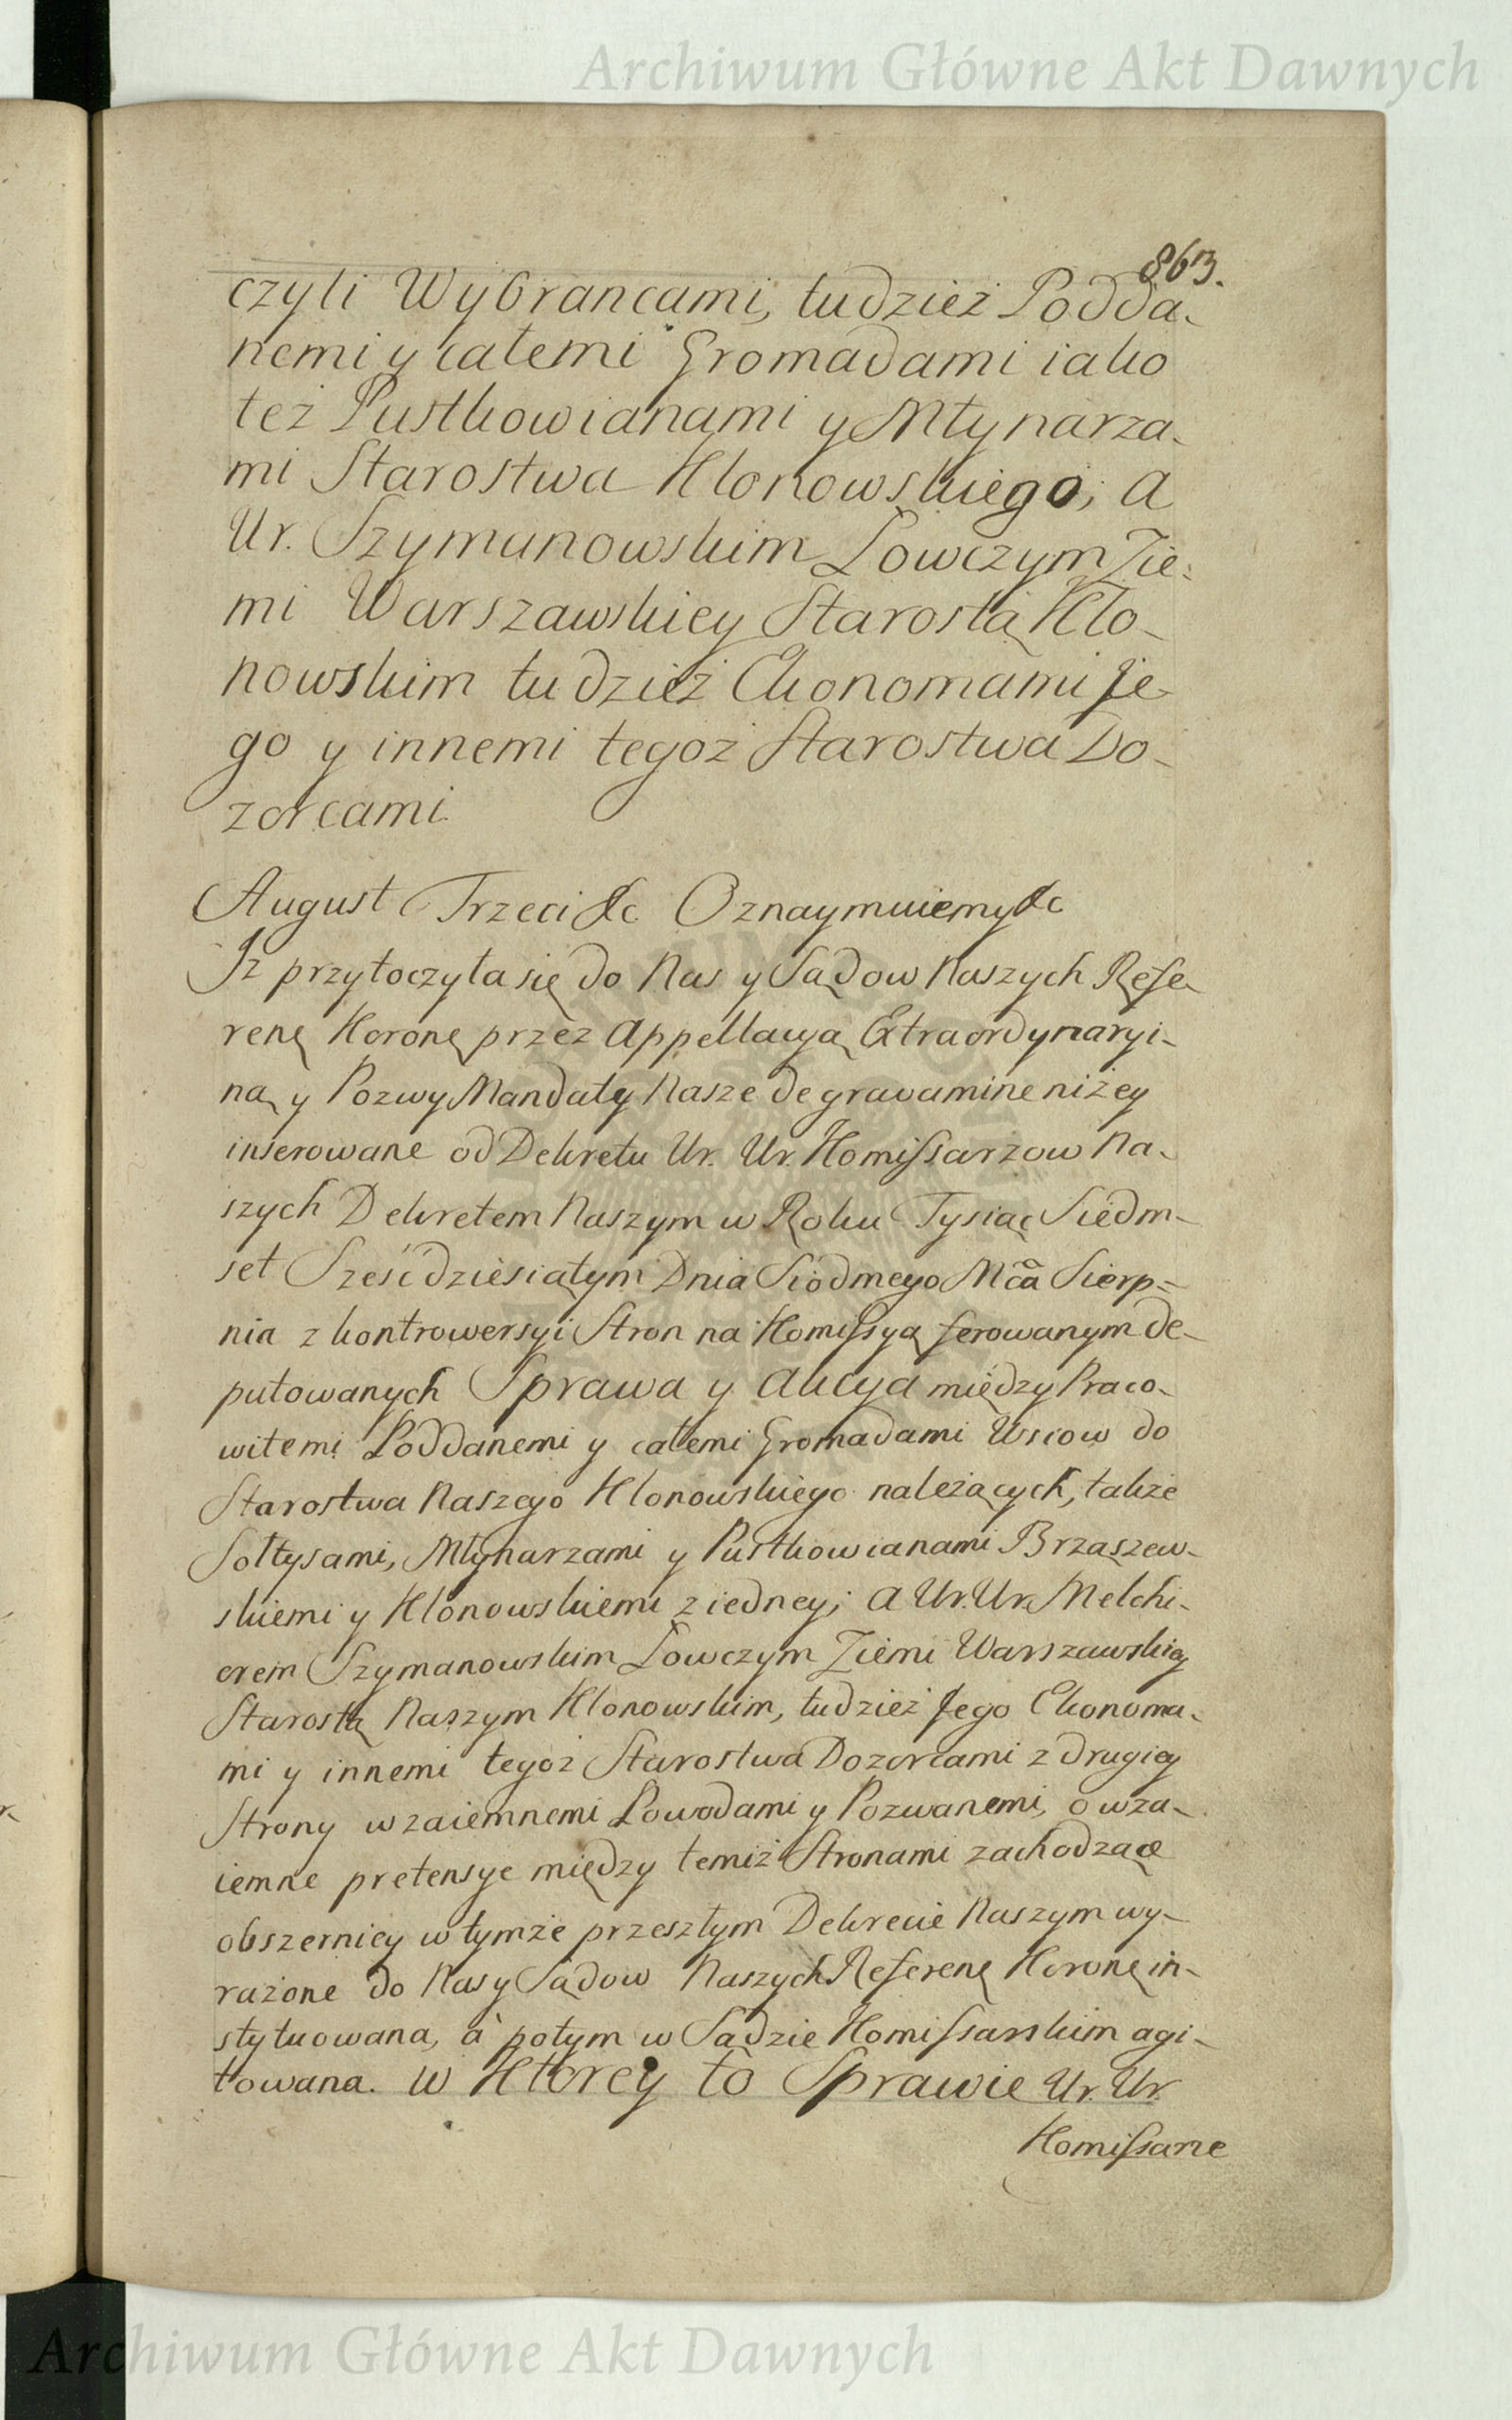 Archiwum Główne Akt Dawnych
863.
czyli Wybrancami, tudzież Podda-
nemi y całemi Gromadami iako
też Pustkowianami y Młynarza-
mi Starostwa Klonowskiego; a
Ur. Szymanowskim Łowczym Zie-
mi Warszawskiey Starostą Klo-
nowskim tudzież Ekonomami Je-
go y innemi tegoż Starostwa Do-
zorcami.
August Trzeci &c Oznaymuiemy &c
Iż przytoczyła się do Nas y Sądow Naszych Refe-
renę Koronę przez Appellacyą Extraordynaryi-
ną y Pozwy Mandaty Nasze de gravamine niżey
inserowane od Dekretu Ur. Ur. Komissarzow Na-
szych Dekretem Naszym w Roku Tysiąc Siedm-
set Sześćdziesiątym Dnia Siodmego Mca Sierp=
nia z kontrowersyi Stron na Komissyą ferowanym de-
putowanych Sprawa y Akcya między Praco-
witemi Poddanemi y całemi Gromadami Wsiow do
Starostwa Naszego Klonowskiego należących, także
Sołtysami, Młynarzami y Pustkowianami Brząszew-
skiemi y Klonowskiemi z iedney; a Ur. Ur. Melchi-
orem Szymanowskim Łowczym Ziemi Warszawskiey
Starostą Naszym Klonowskim, tudzież Jego Ekonoma-
mi y innemi tegoż Starostwa Dozorcami z drugiey
Strony wzaiemnemi Powodami y Pozwanemi, o wza-
iemne pretensye między temiż Stronami zachodzące
obszerniey w tymże przeszłym Dekrecie Naszym wy-
rażone do Nas y Sądow Naszych Referenę Koronę in-
stytuowana, à potym w Sądzie Komissarskim agi-
towana. W Ktorey to Sprawie Ur. Ur.
Komissarze
Archiwum Główne Akt Dawnych